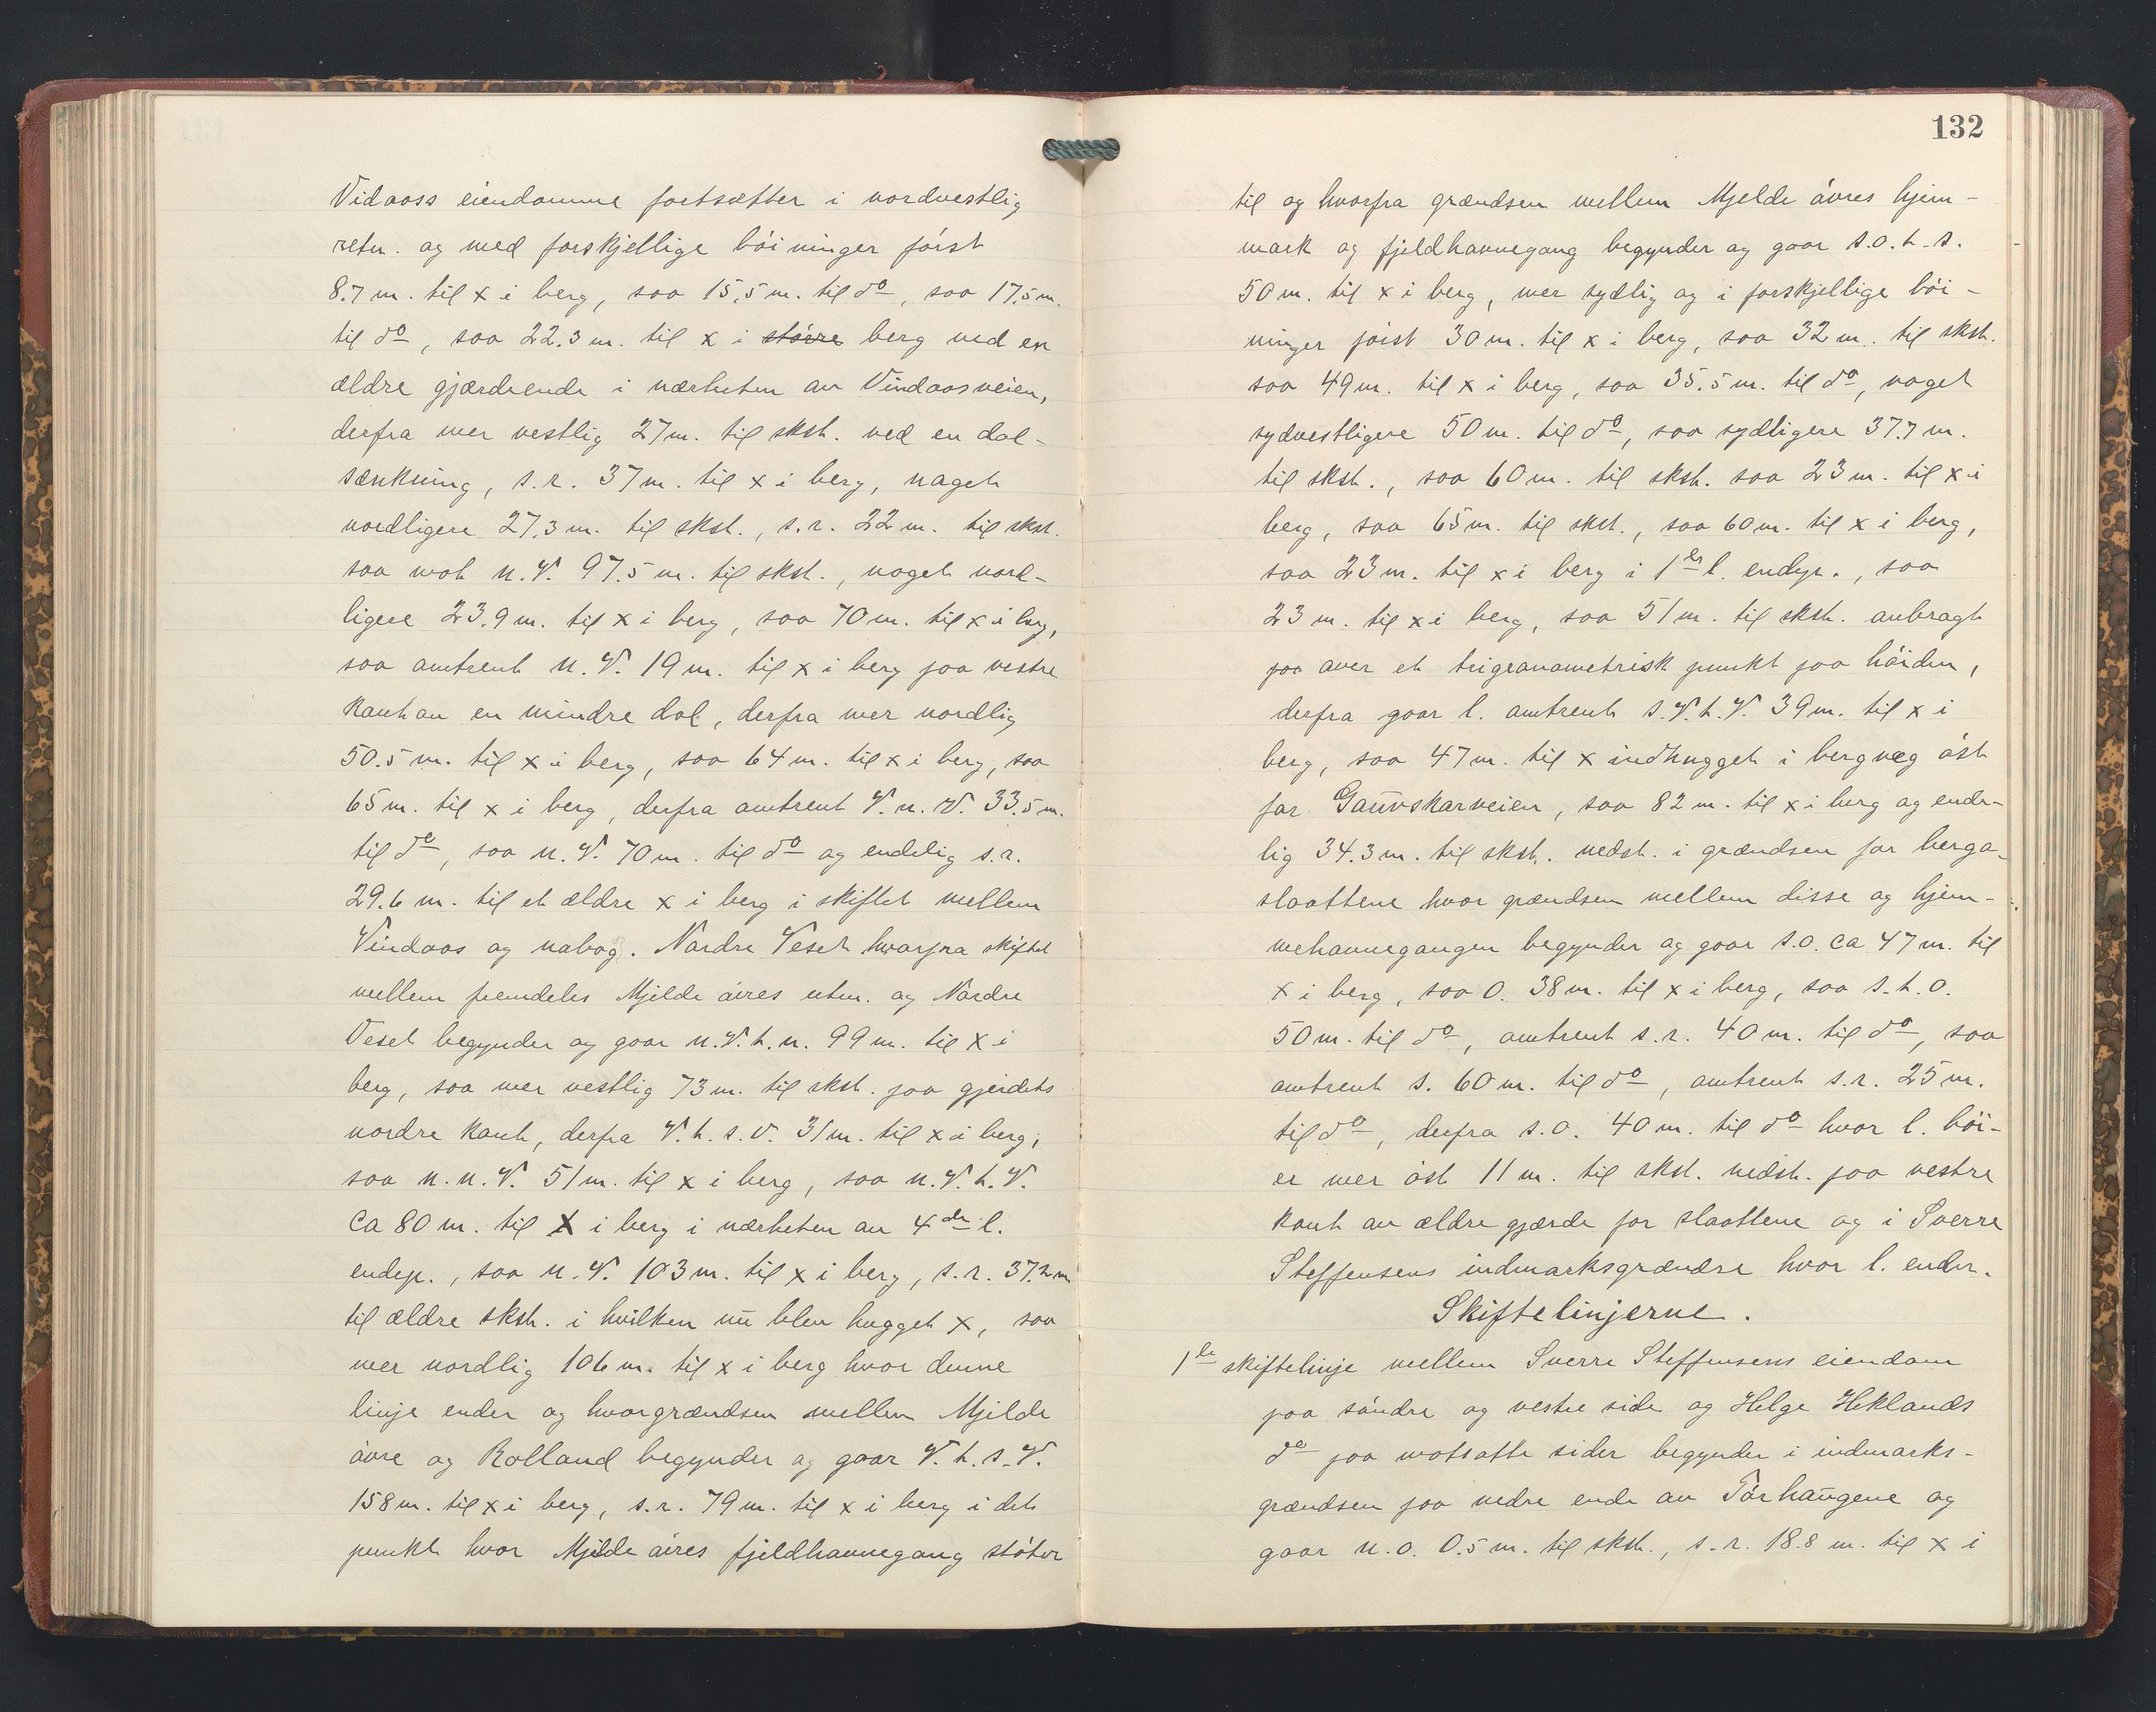 Vidaass eiendomme fortsætter i nordvestlig
retn. og med forskjellige bøininger først
8.7 m. til x i berg, saa 15,5 m. til do, saa 17,5 m.
til do, saa 22.3 m. til x i større berg ved en
ældre gjærdeende i nærheten av Vindaasveien,
derfra mer vestlig 27 m. til skst. ved en dal-
sænkning, s.r. 37 m. til x i berg, noget
nordligere 27,3 m. til skst., s.r. 22 m. til skst.
saa mot n.V. 97.5 m. til skst., noget nord-
ligere 23.9 m. til x i berg, saa 70 m. til x i berg,
saa omtrent n.V. 19 m. til x i berg paa vestre
kant av en mindre dal, derfra mer nordlig
50.5 m. til x i berg, saa 64 m. til x i berg, saa
65 m. til x i berg, derfra omtrent V.n.V. 33.5 m.
til do, saa n.V. 70 m. til do og endelig s.r.
29.6 m. til et ældre x i berg i skiftet mellem
Vindaas og nabog. Nordre Veset hvorfra skiftet
mellem fremdeles Mjelde øvres utm. og Nordre
Veset begynder og gaar n.V.t.n. 99 m. til x i
berg, saa mer vestlig 73 m. til skst. paa gjerdets
nordre kant, derfra V.t.s.V. 31 m. til x i berg,
saa n.n.V. 51 m. til x i berg, saa n.V.t.V.
ca 80 m. til x i berg i nærheten av 4de l.
endep., saa n.V. 103 m. til x i berg, s.r. 37.2 m
til ældre skst. i hvilken nu blev hugget x, saa
mer nordlig 106 m. til x i berg hvor denne
linje ender og hvor grændsen mellem Mjelde
øvre og Rolland begynder og gaar V.t.s.V.
158 m. til x i berg, s.r. 79 m. til x i berg i det
punkt hvor Mjelde øvres fjeldhavnegang støter
132
til og hvorfra grændsen mellem Mjelde øvres hjem-
mark og fjeldhavnegang begynder og gaar s.o.t.s.
50 m. til x i berg, mer sydlig og i forskjellige bøi-
ninger først 30 m. til x i berg, saa 32 m. til skst.
saa 49 m. til x i berg, saa 35.5 m. til do, noget
sydvestligere 50 m. til do, saa sydligere 37.7 m.
til skst., saa 60 m. til skst. saa 23 m. til x i
berg, saa 65 m. til skst., saa 60 m. til x i berg,
saa 23 m. til x i berg i 1ste l. endep., saa
23 m. til x i berg, saa 51 m. til skst. anbragt
paa over et trigeonometrisk punkt paa høiden,
derfra gaar l. omtrent s.V.t.V. 39 m. til x i
berg, saa 47 m. til x indhugget i bergvæg øst
for Gauvskarveien, saa 82 m. til x i berg og ende-
lig 34.3 m. til skst. nedst. i grændsen for berga-
slaattene hvor grændsen mellem disse og hjem-
mehavnegangen begynder og gaar s.o. ca 47 m. til
x i berg, saa o. 38 m. til x i berg, saa s.t.o.
50 m. til do, omtrent s.r. 40 m. til do, saa
omtrent s. 60 m. til do, omtrent s.r. 25 m.
til do, derfra s.o. 40 m. til do hvor l. bøi-
er mer øst 11 m. til skst. nedst. paa vestre
kant av ældre gjærde for slaattene og i Sverre
Steffensens indmarksgrændse hvor l. ender.
Skiftelinjerne.
1ste skiftelinje mellem Sverre Steffensens eiendom
paa søndre og vestre side og Helge Heklands
do paa motsatte sider begynder i indmarks-
grændsen paa nedre ende av Tørhaugene og
gaar n.o. 0.5 m. til skst., s.r. 18.8 m. til x i